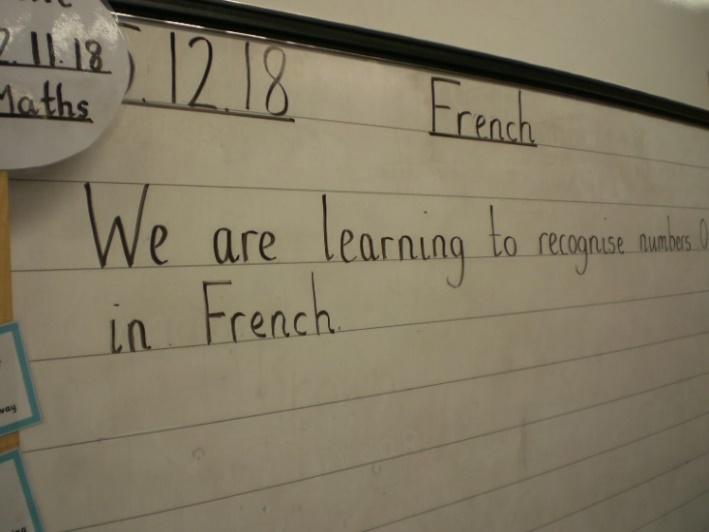 2.11.18
Maths
5.12.18
French
We are learning to recognise numbers 0
in French.
way